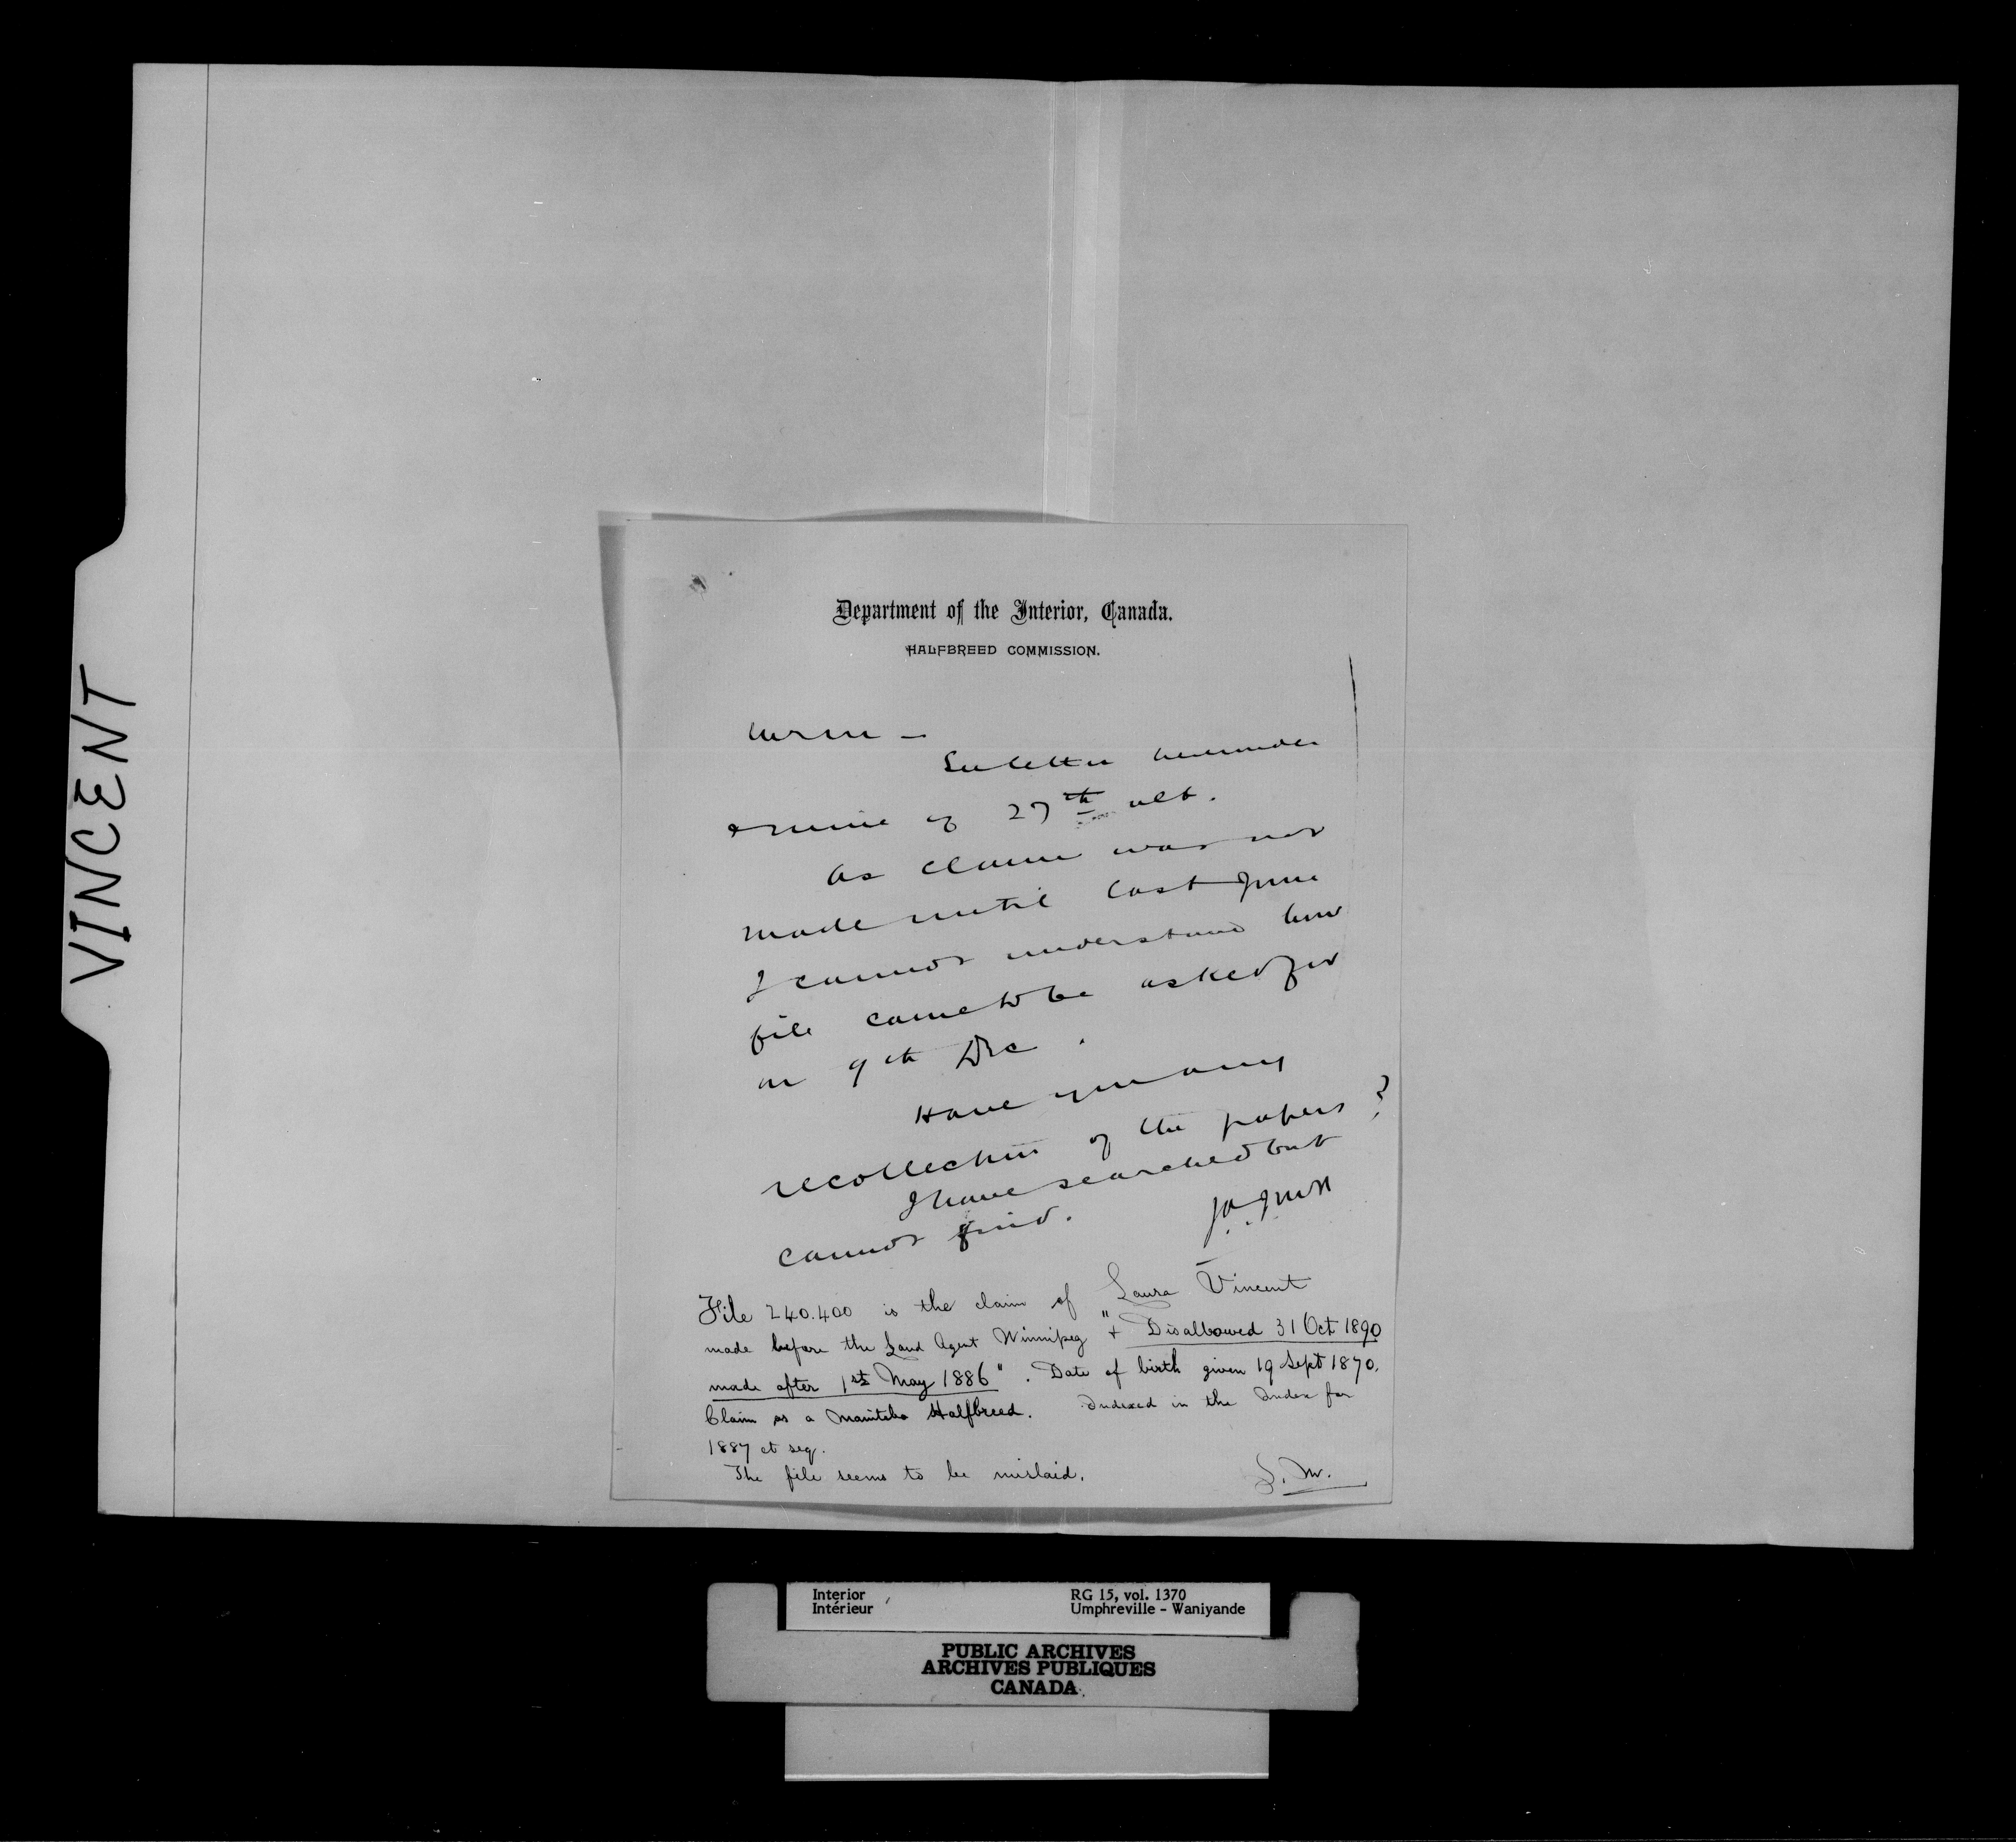 VINCENT
Department of the Interior, Canada.
HALFBREED COMMISSION.
See letter hereunder
& mine of 27th ult.
As claim was not
made until last June
I cannot understand how
file came to be asked for
on 9th Dec.
Have you any
recollection of the papers?
I have searched but
cannot find.
File 240.400 is the claim of Laura Vincent
made before the Land Agent Winnipeg & "Disallowed 31 Oct 1890
made after 1st May 1886". Date of birth given 19 Sept 1870.
Claim as a Manitoba Halfbreed. Indexed in the Index for
1887 et seq.
The file seems to be mislaid.
Interior
Intérieur
RG 15, vol. 1370
Umphreville - Waniyande
PUBLIC ARCHIVES
ARCHIVES PUBLIQUES
CANADA